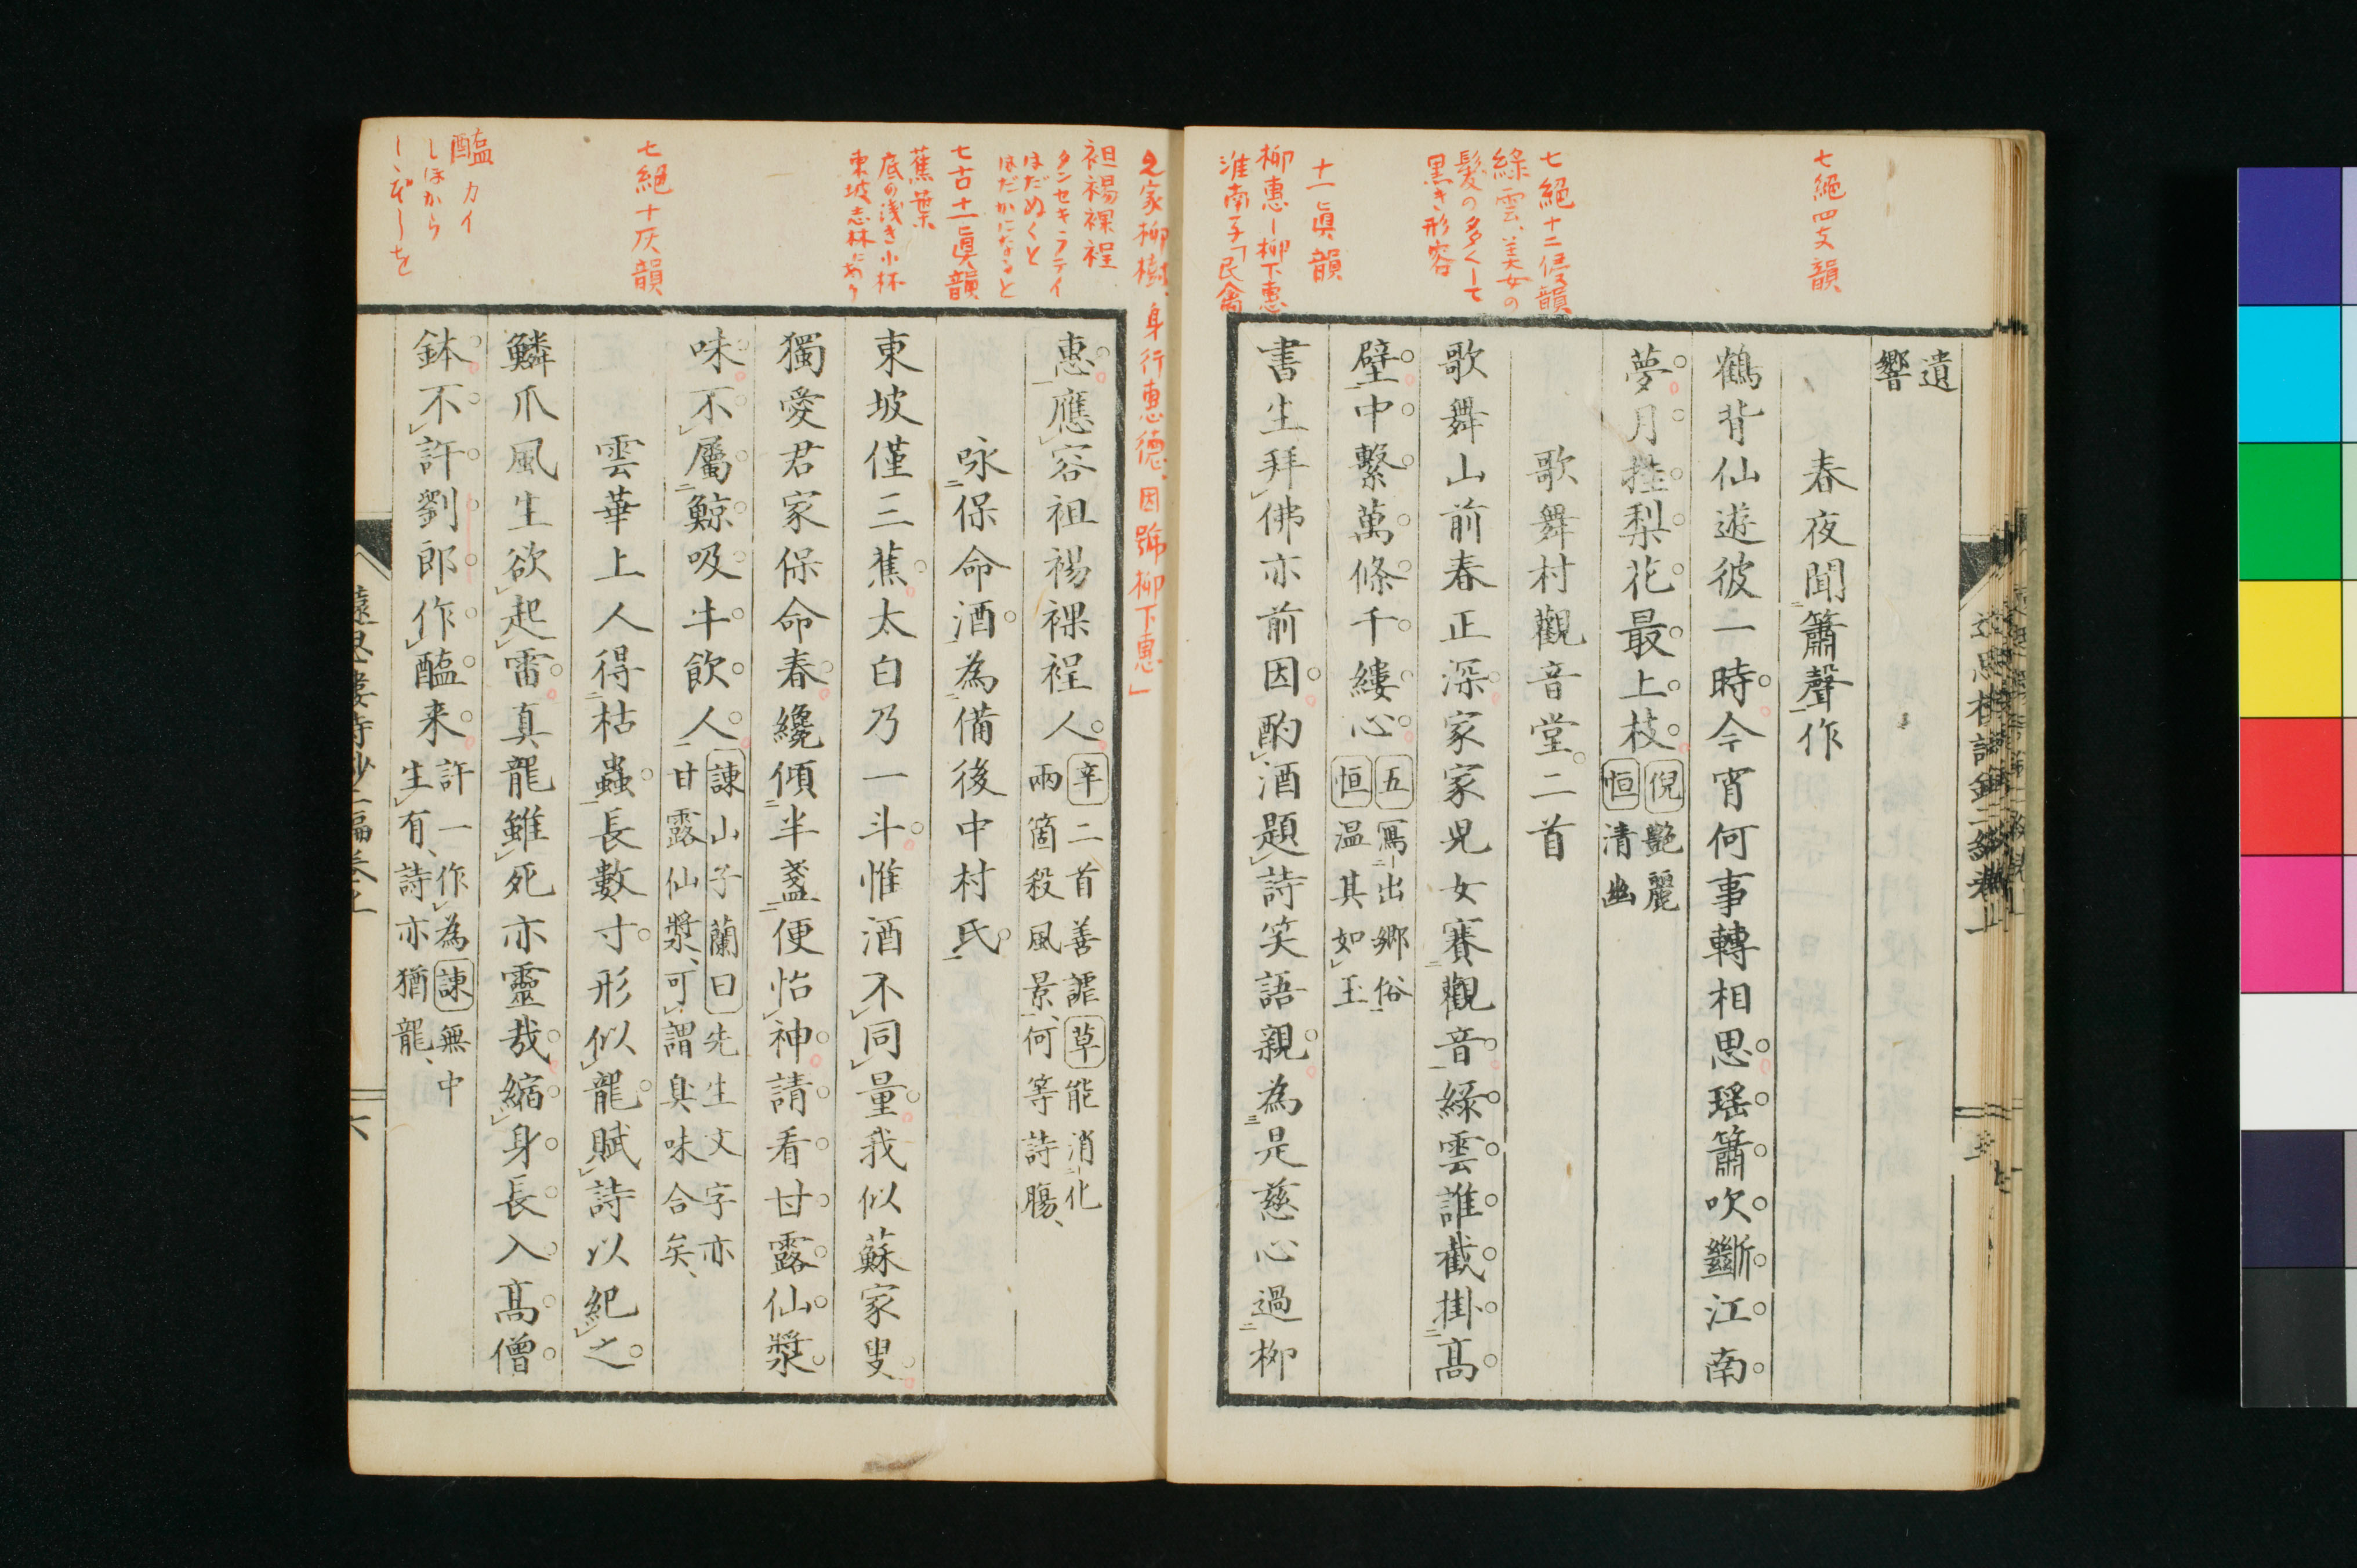 遺
響
春夜聞簫聲作
鶴背仙遊彼一時今宵何事轉相思瑶簫吹斷江南
夢月挂梨花最上枝
倪艷麗
恒清幽
歌舞村觀音堂二首
歌舞山前春正深家家児女賽觀音緑雲誰截掛髙
壁中繫萬條千縷心
五寫出郷俗
恒温其如玉
書生拜佛亦前因酌酒題詩笑語親為是慈心過柳
惠應容袒裼裸裎人
辛二首善謔草能消化
兩箇殺風景何等詩膓
咏保命酒為備後中村氏
東坡僅三蕉太白乃一斗惟酒不同量我似蘇家叟
獨愛君家保命春纔傾半盞便怡神請看甘露仙漿
味不屬鯨吸牛飲人
諌山子蘭曰先生文字亦
甘露仙漿可謂臭味合矣
雲華上人得枯蟲長數寸形似龍賦詩以紀之
鱗爪風生欲起雷真龍雖死亦靈哉縮身長入髙僧
鉢不許劉郎作醢来
許一作為諌無中
生有詩亦猶龍
六
七絕四支韻
七絕十二侵韻
緑雲、美女の
髪の多くして
黒き形容
十一眞韻
柳惠ー柳下惠
淮南子「民禽
之家柳樹、身行惠德、因號柳下惠」
袒裼裸裎
タンセキラテイ
はだぬくと
はだかになると
七古十一眞韻
蕉葉
底の浅き小杯
東坡志林にあり
七絕十灰韻
醢カイ
しほから
ししびしを